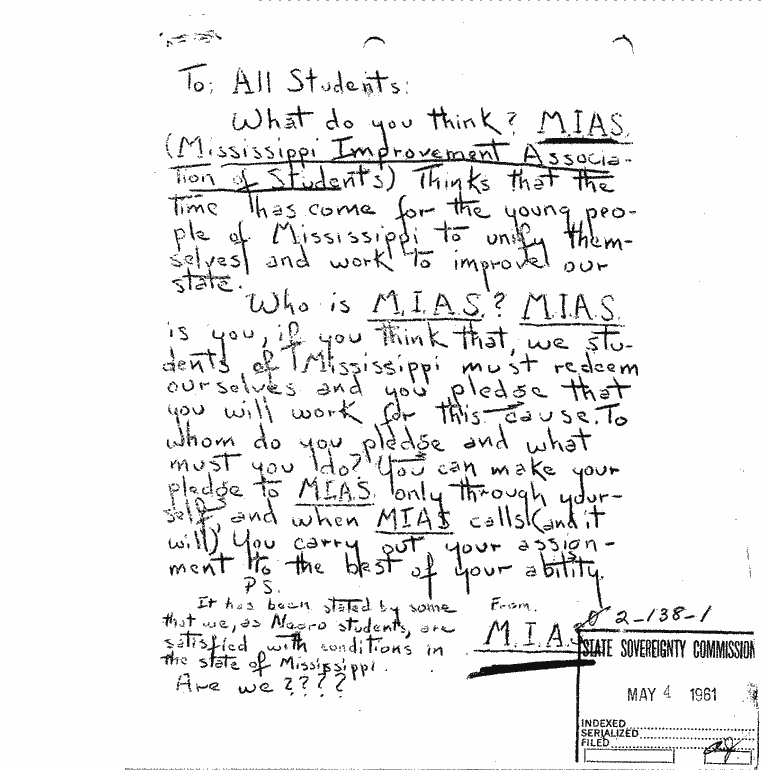 To: All Students:
What do you think? M.I.A.S.
(Mississippi Improvement Associa-
tion of Students) Thinks that the
time has come for the young peo-
ple of Mississippi to unify them-
selves and work to improve our
state.
Who is M.I.A.S.? M.I.A.S.
is you, if you think that, we stu-
dents of Mississippi must redeem
ourselves and you pledge that
you will work for this cause. To
whom do you pledge and what
must you do? You can make your
pledge to MIAS. only through your-
self, and when MIAS calls (and it
will) You carry out your assign-
ment to the best of your ability.
P.S.
It has been stated by some
that we, as Negro students, are
satisfied with conditions in
the state of Mississippi.
Are we ????
From.
M.I.A.S
2-138-1
STATE SOVEREIGNTY COMMISSION
MAY 4 1961
INDEXED
SERIALIZED
FILED